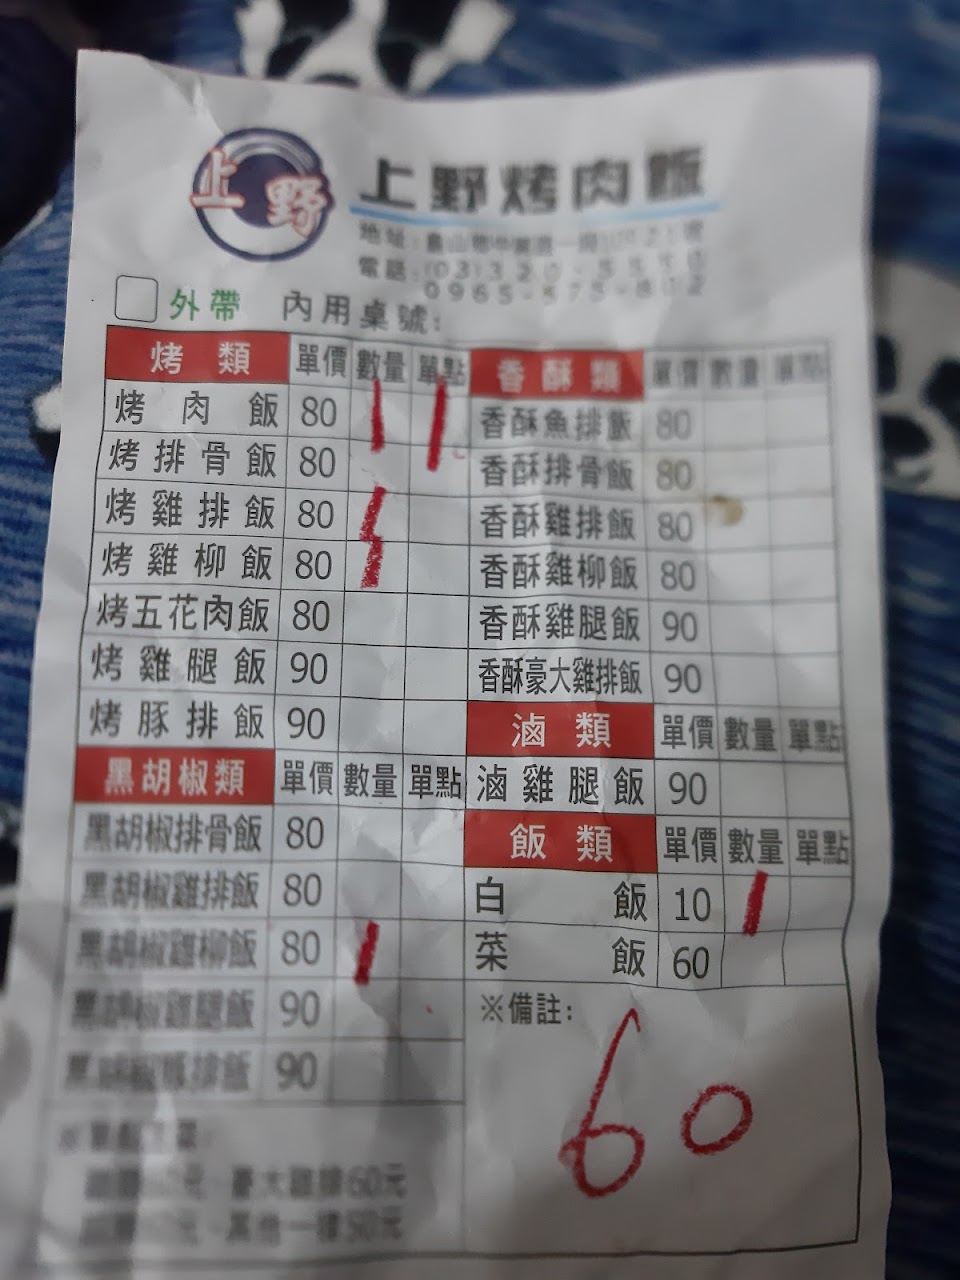 上野
上野烤肉飯
電話:(03)320-5550
0965-575-802
外帶 內用桌號:
烤類 單價 數量 單點
烤肉飯 80 1 1
烤排骨飯 80
烤雞排飯 80 1
烤雞柳飯 80 1
烤五花肉飯 80
烤雞腿飯 90
烤豚排飯 90
黑胡椒類 單價 數量 單點
黑胡椒排骨飯 80
黑胡椒雞排飯 80
黑胡椒雞柳飯 80 1
黑胡椒雞腿飯 90
黑胡椒豚排飯 90
豪大雞排60元
其他一律50元
香酥類 單價 數量 單點
香酥魚排飯 80
香酥排骨飯 80
香酥雞排飯 80
香酥雞柳飯 80
香酥雞腿飯 90
香酥豪大雞排飯 90
滷類 單價 數量 單點
滷雞腿飯 90
飯類 單價 數量 單點
白飯 10 1
菜飯 60
※備註:
60